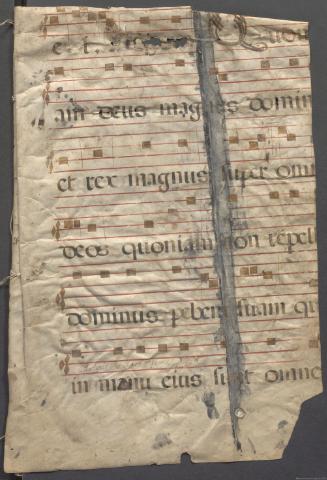 am deus magnus domin
et rex magnus super omn
deos quoniam non repel
dominus plebem suam qu
in manu eius sunt omne